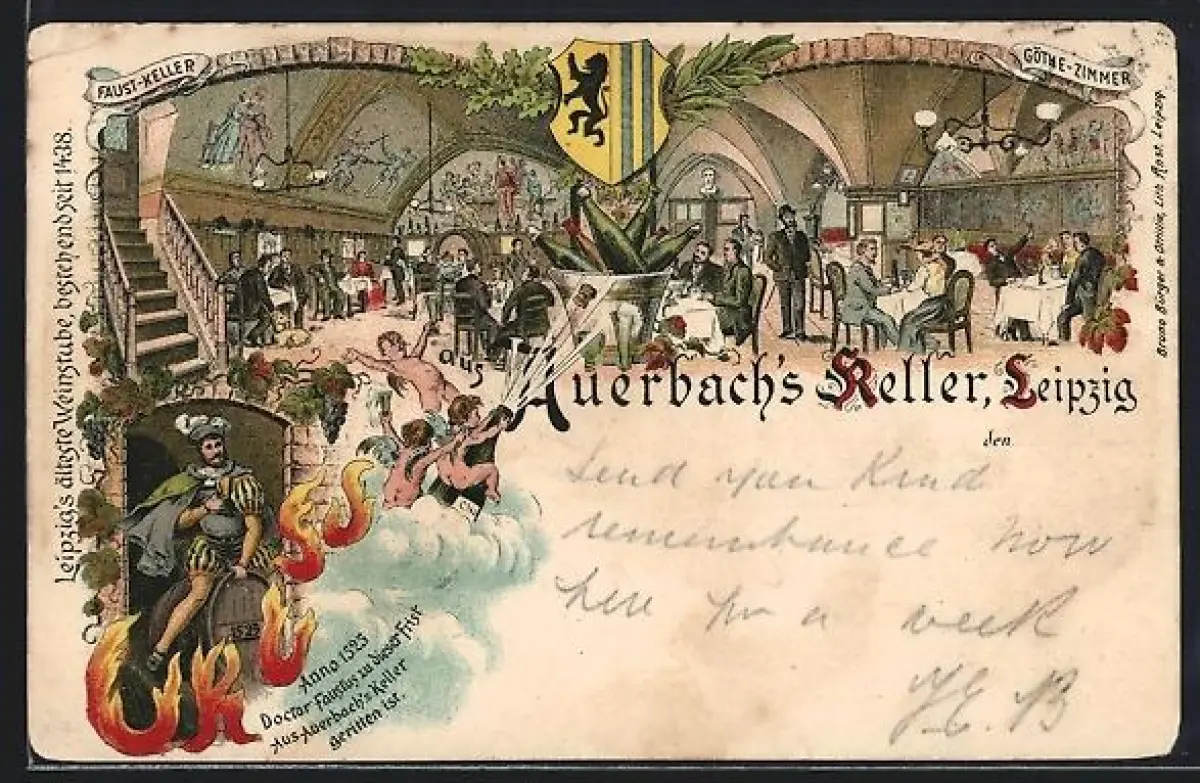 FAUST-KELLER
GÖTHE-ZIMMER
Leipzig's älteste Weinstube, bestehend seit 1438.
Bruno Bürger & Ottillie, Lith. Anst. Leipzig.
GRUSS
aus
Auerbach's Keller, Leipzig
den
Send you Kind
remembrance now
here for a week
1525
Anno 1525
Doctor Faustus zu dieser Frist
Aus Auerbach's Keller
geritten ist.